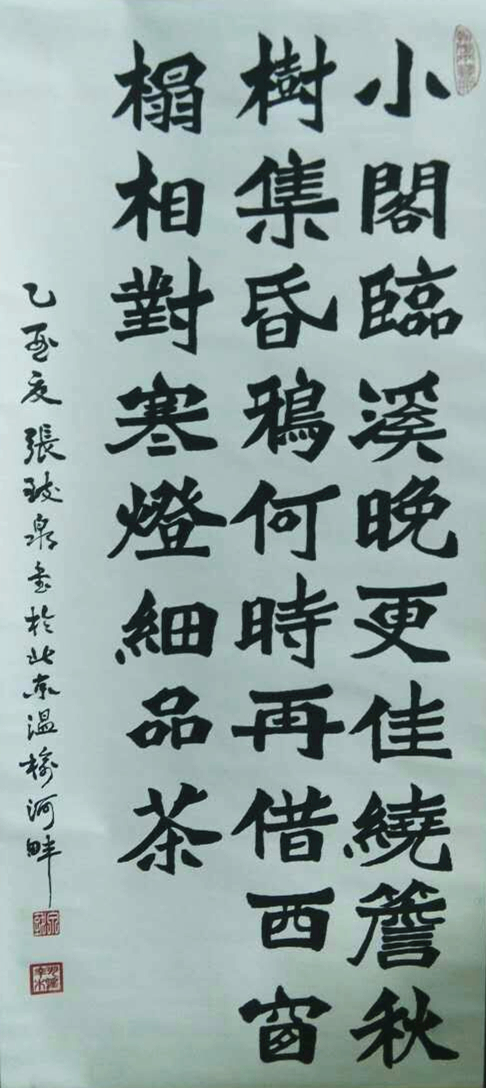 小閣臨溪晚更佳繞簷秋
樹集昏鴉何時再借西窗
榻相對寒燈細品茶
乙酉夏張玻泉書於北京溫榆河畔